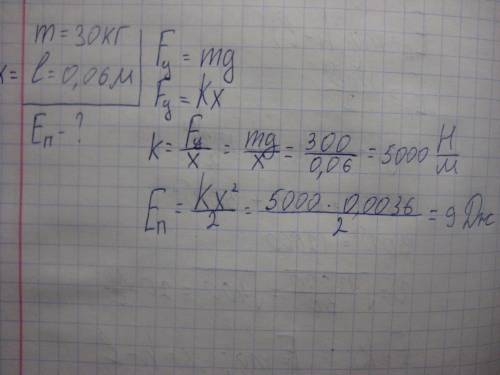 m = 30 кг
x = l = 0,06 м
Eп - ?
Fу = mg
Fу = Kx
k = Fу/x = mg/x = 300/0,06 = 5000 Н/м
Eп = Kx²/2 = 5000 · 0,0036/2 = 9 Дж